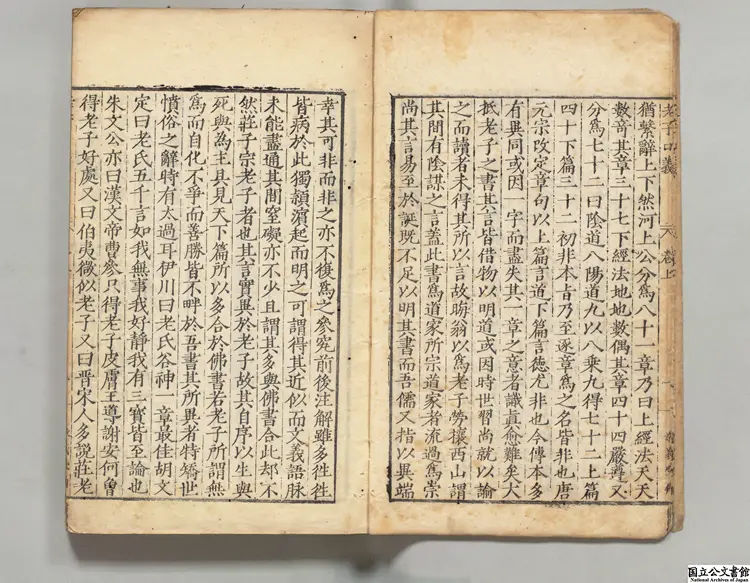 老子口義 卷上
猶繫辭上下然河上公分爲八十一章乃曰上經法天天
數竒其章三十七下經法地地數偶其章四十四嚴遵又
分爲七十二曰陰道八陽道九以八乗九得七十二上篇
四十下篇三十二初非本旨乃至逐章爲之名皆非也唐
元宗改定章句以上篇言道下篇言徳尤非也今傳本多
有異同或因一字而盡失其一章之意者識眞愈難矣大
抵老子之書其言皆借物以明道或因時世習尚就以諭
之而讀者未得其所以言故晦翁以爲老子勞攘西山謂
其間有陰謀之言葢此書爲道家所宗道家者流過爲崇
尚其言易至於誕既不足以明其書而吾儒又指以異端
幸其可非而非之亦不復爲之參究前後注解雖多徃徃
皆病於此獨頴濱起而明之可謂得其近似而文義語脉
未能盡通其間窒礙亦不少且謂其多與佛書合此却不
然莊子宗老子者也其言實異於老子故其自序以生與
死與爲主具見天下篇所以多合於佛書若老子所謂無
爲而自化不爭而善勝皆不畔於吾書其所異者特矯世
憤俗之辭時有太過耳伊川曰老氏谷神一章最佳胡文
定曰老氏五千言如我無事我好靜我有三寳皆至論也
朱文公亦曰漢文帝曹參只得老子皮膚王導謝安何曽
得老子好處又曰伯夷微似老子又曰晋宋人多説莊老
国立公文書館
National Archives of Japan